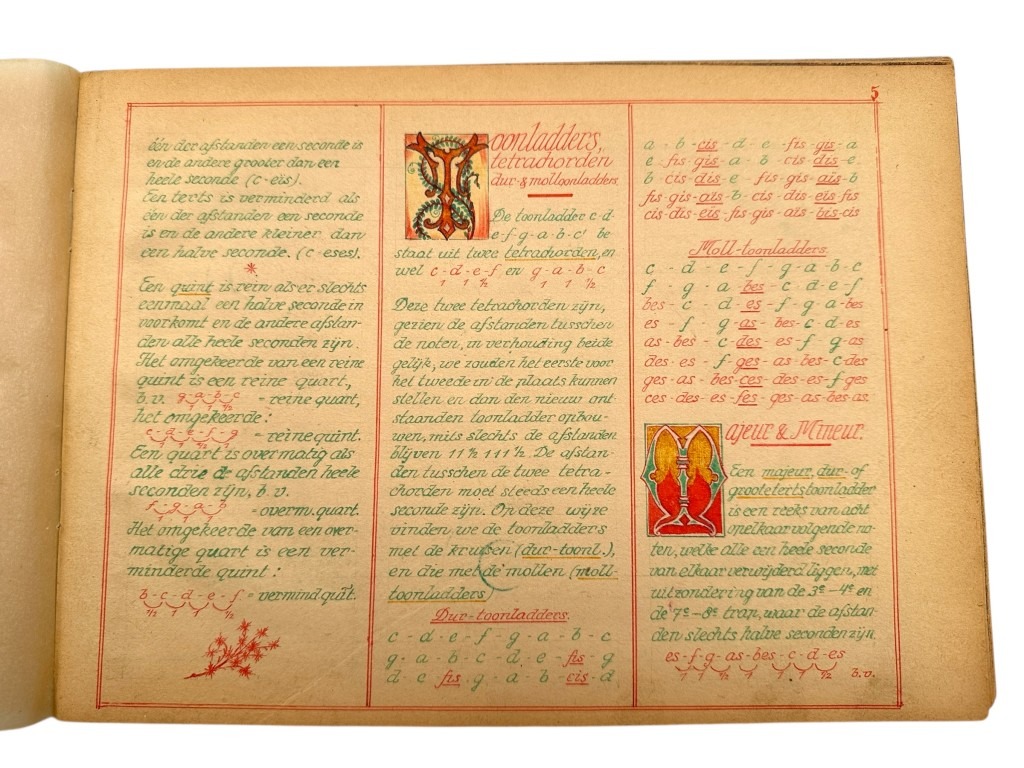 5
één der afstanden een seconde is
en de andere grooter dan een
heele seconde (c-eïs).
Een terts is verminderd als
één der afstanden een seconde
is en de andere kleiner dan
een halve seconde. (c-eses).
*
Een quint is rein als er slechts
eenmaal een halve seconde in
voorkomt en de andere afstan-
den alle heele seconden zijn.
Het omgekeerde van een reine
quint is een reine quart,
b.v. g-a-b-c - reine quart,
1 1 ½
het omgekeerde:
c-d-e-f-g = reine quint.
1 1 ½ 1
Een quart is overmatig als
alle drie de afstanden heele
seconden zijn, b.v.
f-g-a-b - overm. quart.
1 1 1
Het omgekeerde van een over-
matige quart is een ver-
minderde quint:
b-c-d-e-f = vermind quit.
½ 1 1 ½
Toonladders,
tetrachorden
dur-&molloonladders.
De toonladder c-d-
e-f-g-a-b-c' be
staat uit twee tetrachorden, en
wel c-d-e-f en g-a-b-c
1 1 ½ 1 1 ½
Deze twee tetrachorden zijn,
gezien de afstanden tusschen
de noten, in verhouding beide
gelijk, we zouden het eerste voor
het tweede in de plaats kunnen
stellen en dan den nieuw ont
staanden toonladder opbou-
wen, mits slechts de afstanden
blijven 11½ 111½. De afstan-
den tusschen de twee tetra-
chorden moet steeds een heele
seconde zijn. Op deze wijze
vinden we de toonladders
met de kruisen (dur-toonl.),
en die met de mollen (moll-
toonladders)
Dur-toonladders.
c - d - e - f - g - a - b - c
g - a - b - c - d - e - fis - g
d - e fis - g - a - b - cis - d
a - b - cis - d - e - fis - gis - a
e - fis - gis - a - b - cis - dis - e
b - cis - dis - e - fis - gis - ais - b
fis - gis - ais - b - cis - dis - eis - fis
cis - dis - eis - fis - gis - ais - bis - cis
Moll-toonladders.
c - d - e - f - g - a - b - c
f - g - a - bes - c - d - e - f
bes - c - d - es - f - g - a - bes
es - f - g - as - bes - c - d - es
as - bes - c - des - es - f - g - as
des - es - f - ges - as - bes - c - des
ges - as - bes - ces - des - es - f - ges
ces - des - es - fes - ges - as - bes - as.
Majeur & Mineur.
Een majeur, dur- of
groote terts toonladder
is een reeks van acht
op elkaar volgende no-
ten, welke alle een heele seconde
van elkaar verwijderd liggen, met
uitzondering van de 3e-4e en
de 7e-8e trap, waar de afstan-
den slechts halve seconden zijn.
es-f-g-as-bes-c-d-es
1 1 ½ 1 1 1 ½ b.v.